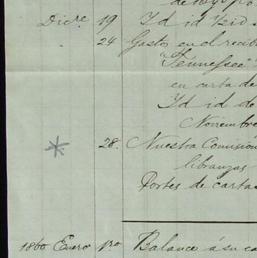 de
Dice 19 Id id
24 Gastos en el recib
"Tennessee"
en carta de
Id id de
Noviembre
28. Nuestra Comision
libranzas
Portes de cartas
1860 Enero pro Balance á su ca